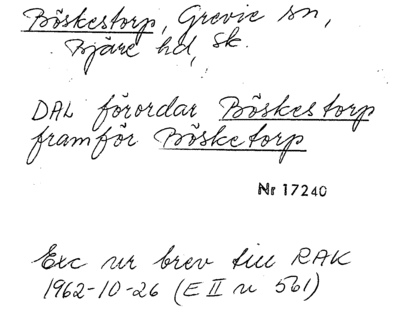 Böskestorp, Grevie sn,
Bjäre hd, Sk.
DAL förordar Böskestorp
framför Bösketorp
Nr 17240
Exc ur brev till RAK
1962-10-26 (E II u 561)